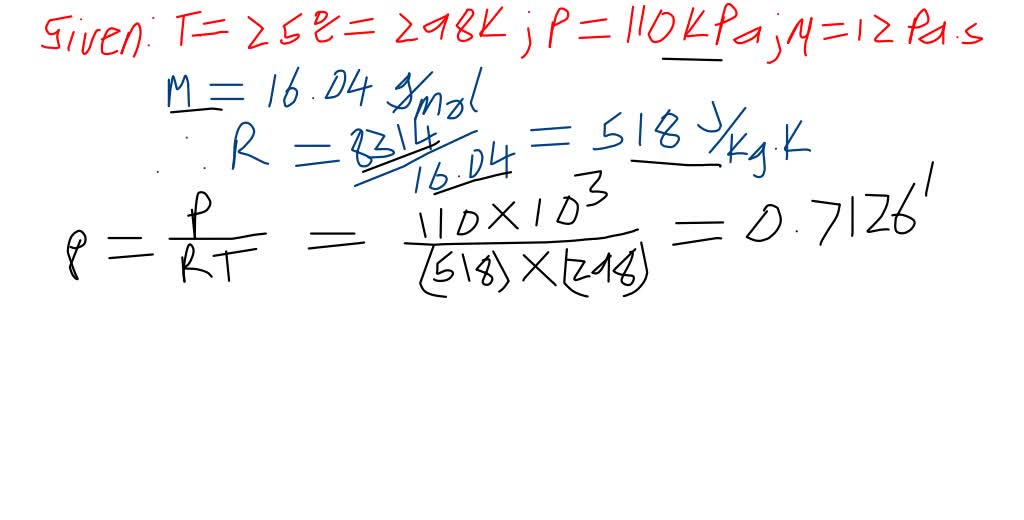 Given: T = 25℃ = 298K ; P = 110KPa ; μ = 12 Pa.s
M = 16.04 g/mol
R = 8314/16.04 = 518 J/Kg.K
ρ = P/RT = 110×10³/(518)×(298) = 0.7126